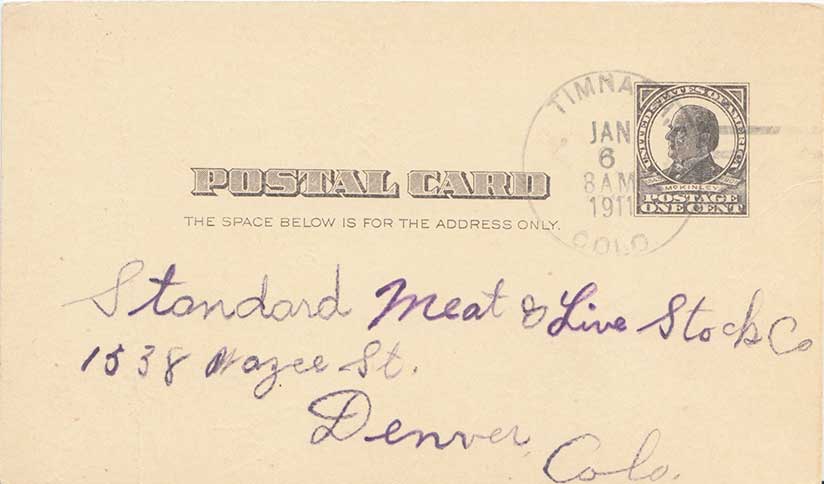 TIMNA
JAN
6
8 AM
1911
COLO
UNITED STATES OF AMERICA
McKINLEY
POSTAGE
ONE CENT
POSTAL CARD
THE SPACE BELOW IS FOR THE ADDRESS ONLY.
Standard Meat & Live Stock Co
1538 Wazee St.
Denver
Colo.